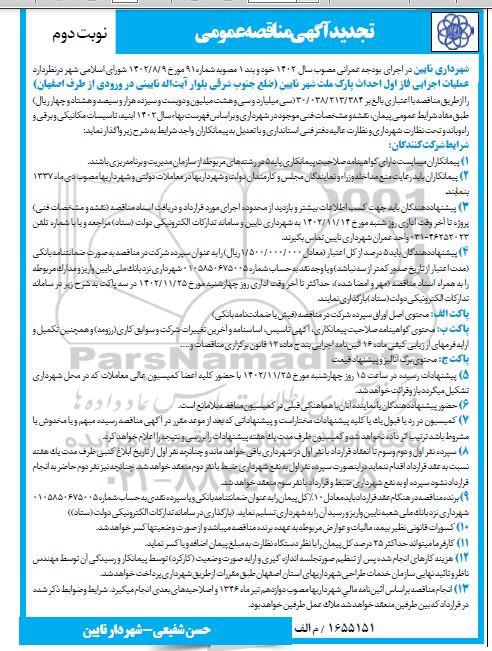 تجدید آگهی مناقصه عمومی
نوبت دوم
شهرداری نایین در اجرای بودجه عمرانی مصوب سال ۱۴۰۲ خود و بند ۱ مصوبه شماره ۹۱ مورخ ۱۴۰۲/۸/۹ شورای اسلامی شهر در نظر دارد
عملیات اجرایی فاز اول احداث پارک ملت شهر نایین (ضلع جنوب شرقی بلوار آیت‌اله نایینی در ورودی از طرف اصفهان)
را از طریق مناقصه با اعتباری بالغ بر ۳۰/۰۳۸/۲۱۳/۳۸۴ (سی میلیارد و سی و هشت میلیون و دویست و سیزده هزار و سیصد و هشتاد و چهار ریال)
طبق مفاد شرایط عمومی پیمان، نقشه و مشخصات فنی موجود در شهرداری و براساس فهرست بهاء سال ۱۴۰۲ ابنیه، تاسیسات مکانیکی و برقی و
راه و باند و تحت نظارت شهرداری و نظارت عالیه دفتر فنی استانداری و با تعدیل به پیمانکاران واجد شرایط به شرح زیر واگذار نماید:
شرایط شرکت کنندگان:
۱) پیمانکاران میبایست دارای گواهینامه صلاحیت پیمانکاری پایه ۵ در رشته‌های مربوطه از سازمان مدیریت و برنامه‌ریزی باشند.
۲) پیمانکاران باید رعایت منع مداخله وزراء و نمایندگان مجلس و کارمندان دولت و شهرداریها در معاملات دولتی و شهرداریها مصوب دی ماه ۱۳۳۷
بنمایند.
۳) پیشنهاد دهندگان باید جهت کسب اطلاعات بیشتر و بازدید از محدوده اجرای مورد قرارداد و دریافت اسناد مناقصه (نقشه و مشخصات فنی)
پروژه تا آخر وقت اداری روز شنبه مورخ ۱۴۰۲/۱۱/۱۴ به شهرداری نایین و سامانه تدارکات الکترونیکی دولت (ستاد) مراجعه و یا با شماره تلفن
۰۳۱-۴۶۲۵۲۰۲۳ واحد عمران شهرداری نایین تماس بگیرند.
۴) پیشنهاد دهندگان باید ۵ درصد از کل اعتبار (معادل ۱/۵۰۰/۰۰۰/۰۰۰ ریال) را به عنوان سپرده شرکت در مناقصه به صورت ضمانتنامه بانکی
(مدت اعتبار از تاریخ صدور کمتر از سه نباشد) و یا وجه نقد به حساب شماره ۰۱۰۵۸۵۰۶۷۵۰۰۵ شهرداری نزد بانک ملی نایین واریز و مدارک مربوطه
را به همراه اسناد مناقصه (مهر و امضا شده)، حداکثر تا آخر وقت اداری روز چهارشنبه مورخ ۱۴۰۲/۱۱/۲۵ در سه پاکت به شرح زیر در سامانه
تدارکات الکترونیکی دولت (ستاد) بارگذاری نمایند.
پاکت الف: محتوی اصل اوراق سپرده شرکت در مناقصه (فیش یا ضمانتنامه بانکی)
پاکت ب: محتوی گواهینامه صلاحیت پیمانکاری، آگهی تاسیس، اساسنامه و آخرین تغییرات شرکت و سوابق کاری (رزومه) و همچنین تکمیل و
ارایه فرمهای ارزیابی کیفی ماده ۱۶ آئین‌نامه اجرایی بند ج ماده ۱۲ قانون برگزاری مناقصات و....
پاکت ج: محتوی برگ آنالیز و پیشنهاد قیمت
۵) پیشنهادات رسیده در ساعت ۱۵ روز چهارشنبه مورخ ۱۴۰۲/۱۱/۲۵ با حضور کلیه اعضا کمیسیون عالی معاملات که در محل شهرداری
تشکیل میگردد باز و قرائت خواهد شد.
۶) حضور پیشنهاد دهندگان یا نماینده آنان با هماهنگی قبلی در کمیسیون مناقصه بلامانع است.
۷) کمیسیون در رد یا قبول یک یا کلیه پیشنهادات مختار است و پیشنهاداتی که بعد از موعد مقرر در آگهی مناقصه رسیده مبهم و یا مخدوش یا
مشروط باشد ترتیب اثر داده نخواهد شد و کمیسیون ظرف مدت یک هفته پیشنهادات را بررسی و نتیجه را اعلام خواهد کرد.
۸) سپرده نفر اول و دوم و سوم تا انعقاد قرارداد با نفر اول در شهرداری باقی خواهد ماند و چنانچه نفر اول از تاریخ ابلاغ کتبی ظرف مدت یک هفته
نسبت به عقد قرارداد اقدام ننماید در اینصورت سپرده نفر اول به نفع شهرداری ضبط با نفر دوم منعقد خواهد شد. چنانچه نیز نفر دوم حاضر به انجام
قرارداد نشود سپرده او به نفع شهرداری ضبط و قرارداد با نفر سوم منعقد خواهد شد.
۹) برنده مناقصه در هنگام عقد قرارداد باید معادل ۱۰٪ کل پیمان را به عنوان ضمانتنامه بانکی و یا سپرده نقدی به حساب شماره ۰۱۰۵۸۵۰۶۷۵۰۰۵
شهرداری نزد بانک ملی شعبه نایین واریز و رسید آن را به شهرداری تسلیم نماید. (بارگذاری در سامانه تدارکات الکترونیکی دولت (ستاد))
۱۰) کسورات قانونی نظیر بیمه، مالیات و عوارض مربوطه به عهده برنده مناقصه میباشد و از صورت وضعیتها کسر خواهد شد.
۱۱) کارفرما میتواند حداکثر ۲۵ درصد کل پیمان را با نظر دستگاه نظارت به مبلغ پیمان اضافه و یا کسر نماید.
۱۲) هزینه کارهای انجام شده پس از تنظیم صورتجلسه اندازه گیری و ارایه صورت وضعیت (کارکرد) توسط پیمانکار و رسیدگی آن توسط مهندس
ناظر و تائید نهایی سازمان خدمات طراحی شهرداریهای استان اصفهان طبق مقررات از طریق شهرداری پرداخت خواهد شد.
۱۳) انجام مناقصه براساس آئین‌نامه مالی شهرداریها مصوب دوازدهم تیر ماه ۱۳۴۶ و اصلاحیه‌های بعدی انجام میگیرد. شرایط و ضوابط ذکر شده
در قرارداد که بین طرفین منعقد خواهد شد ملاک عمل طرفین خواهد بود.
۱۶۵۵۱۵۱ / م الف
حسن شفیعی - شهردار نایین
ParsNamadData